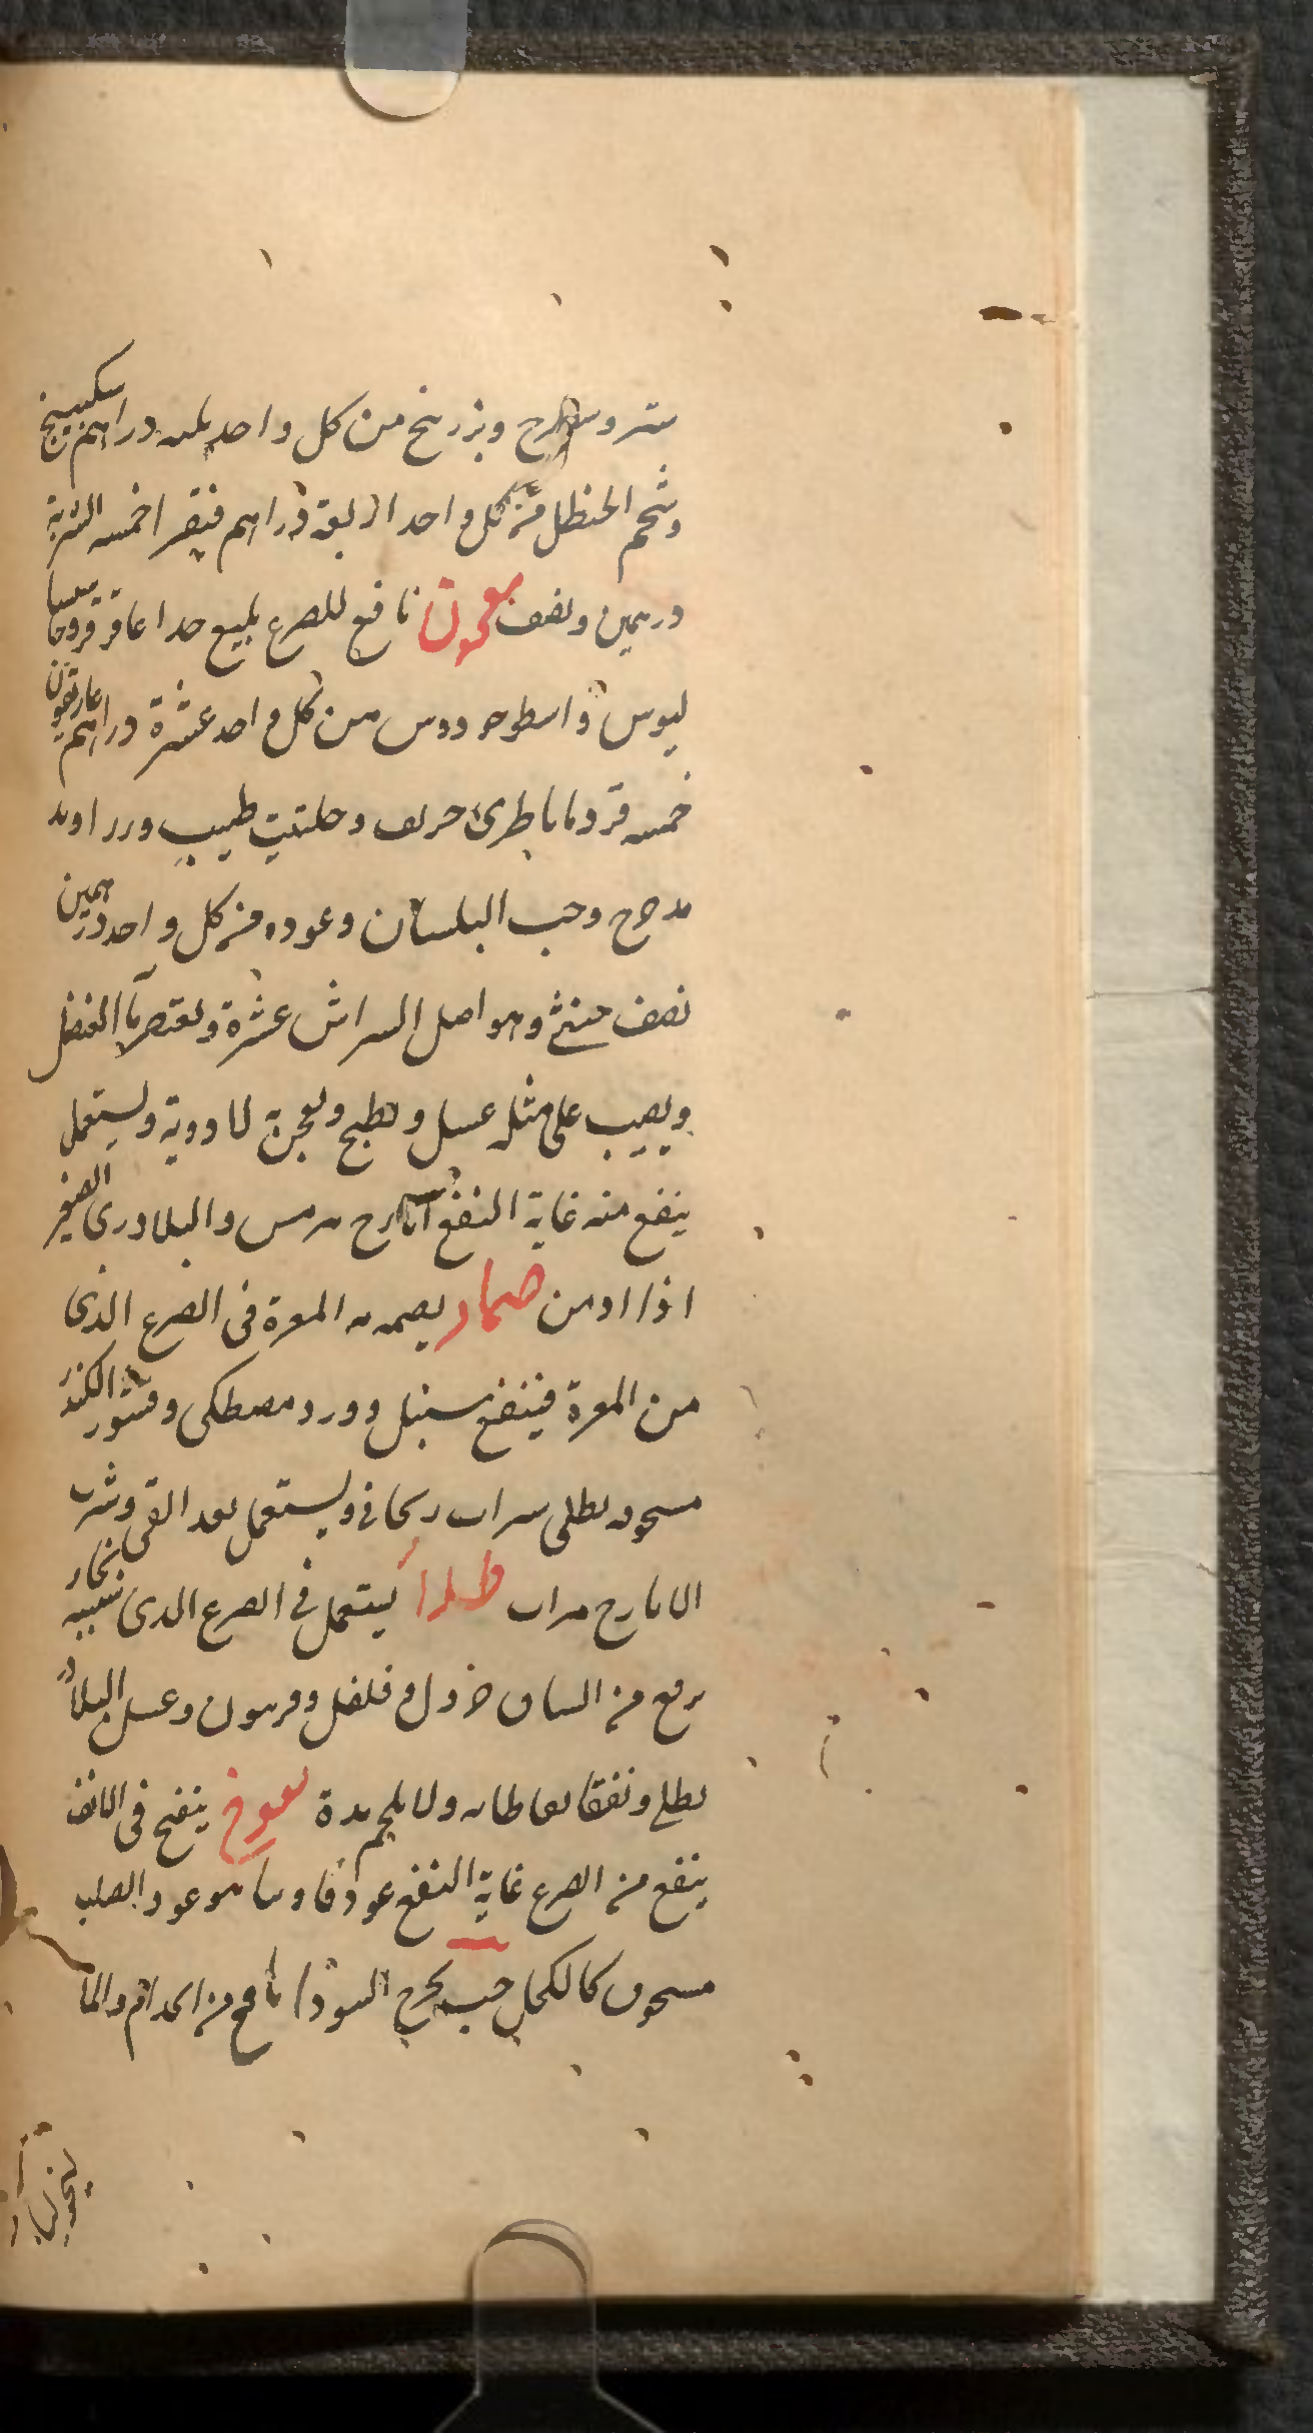 وبزرنج من كل واحد ثلثه دراهم سكبينج
وشحم الحنظل من كل واحد اربعة دراهم فيقرا خمسه الشربة
درهمين ونصف معجون نافع للصرع بليغ جدا عاقر قرحا
ليوس واسطوخودوس من كل واحد عشرة دراهم غاريقون
خمسه قردمانا طرى حريف وحلتيت طيب وزراوند
مدحرج وحب البلسان وعوده من كل واحد درهمين
نصف خنثى وهو اصل السراش عشرة ويعتصر ماء العنصل
ويصب على مثله عسل ويطبخ ويعجن به الادوية ويستعمل
ينفع منه غاية النفع ايارج هرمس والبلادرى الصغير
اذا ادمن ضماد يضمد به المعدة فى الصرع الذى
من المعدة فينفع سنبل وورد مصطكى وقشور الكندر
مسحوقه يطلى بشراب ريحانى ويستعمل بعد القى وشرب
الايارج مرات طلاء يستعمل فى الصرع الذى سببه بخار
يرتفع من الساق خردل وفلفل وفربيون وعسل البلادر
يطلى ونفقا نفاطاته ولا يلحم مدة نفوخ ينفخ فى الانف
ينفع من الصرع غاية النفع عود فاونيا هو عود الصليب
مسحوق كالكحل حب يخرج السودا نافع من الجذام والما
ليخوليا